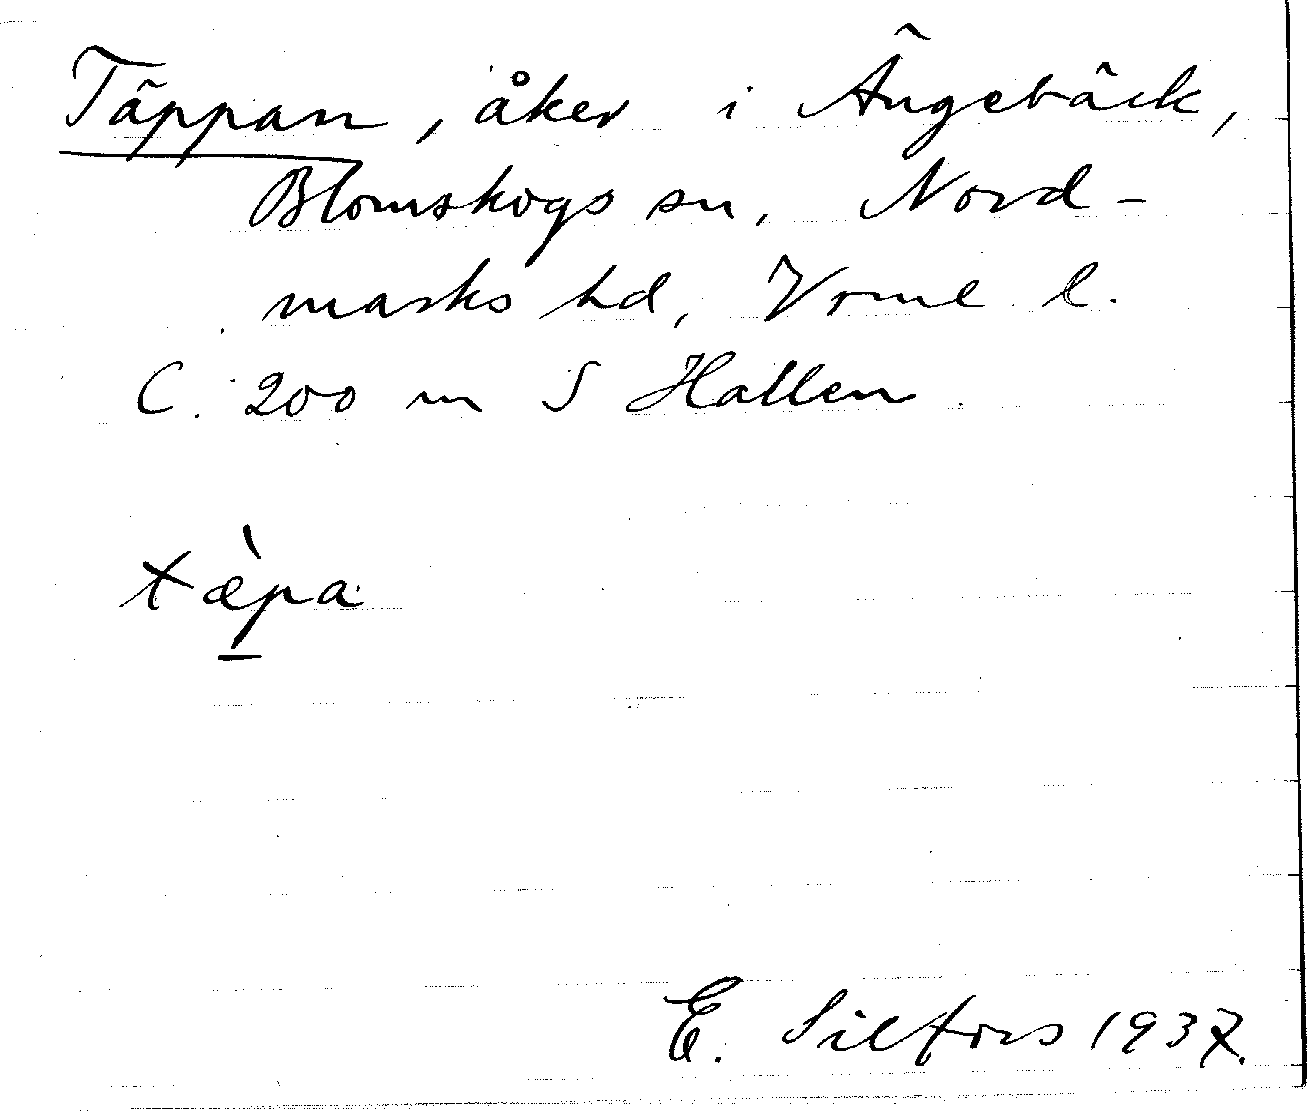 Täppan, åker i Ängebäck,
Blomskogs sn, Nord-
marks hd, Vrml l.
C. 200 m S Hallen.
tæ̀pa
E. Silfors 1937.